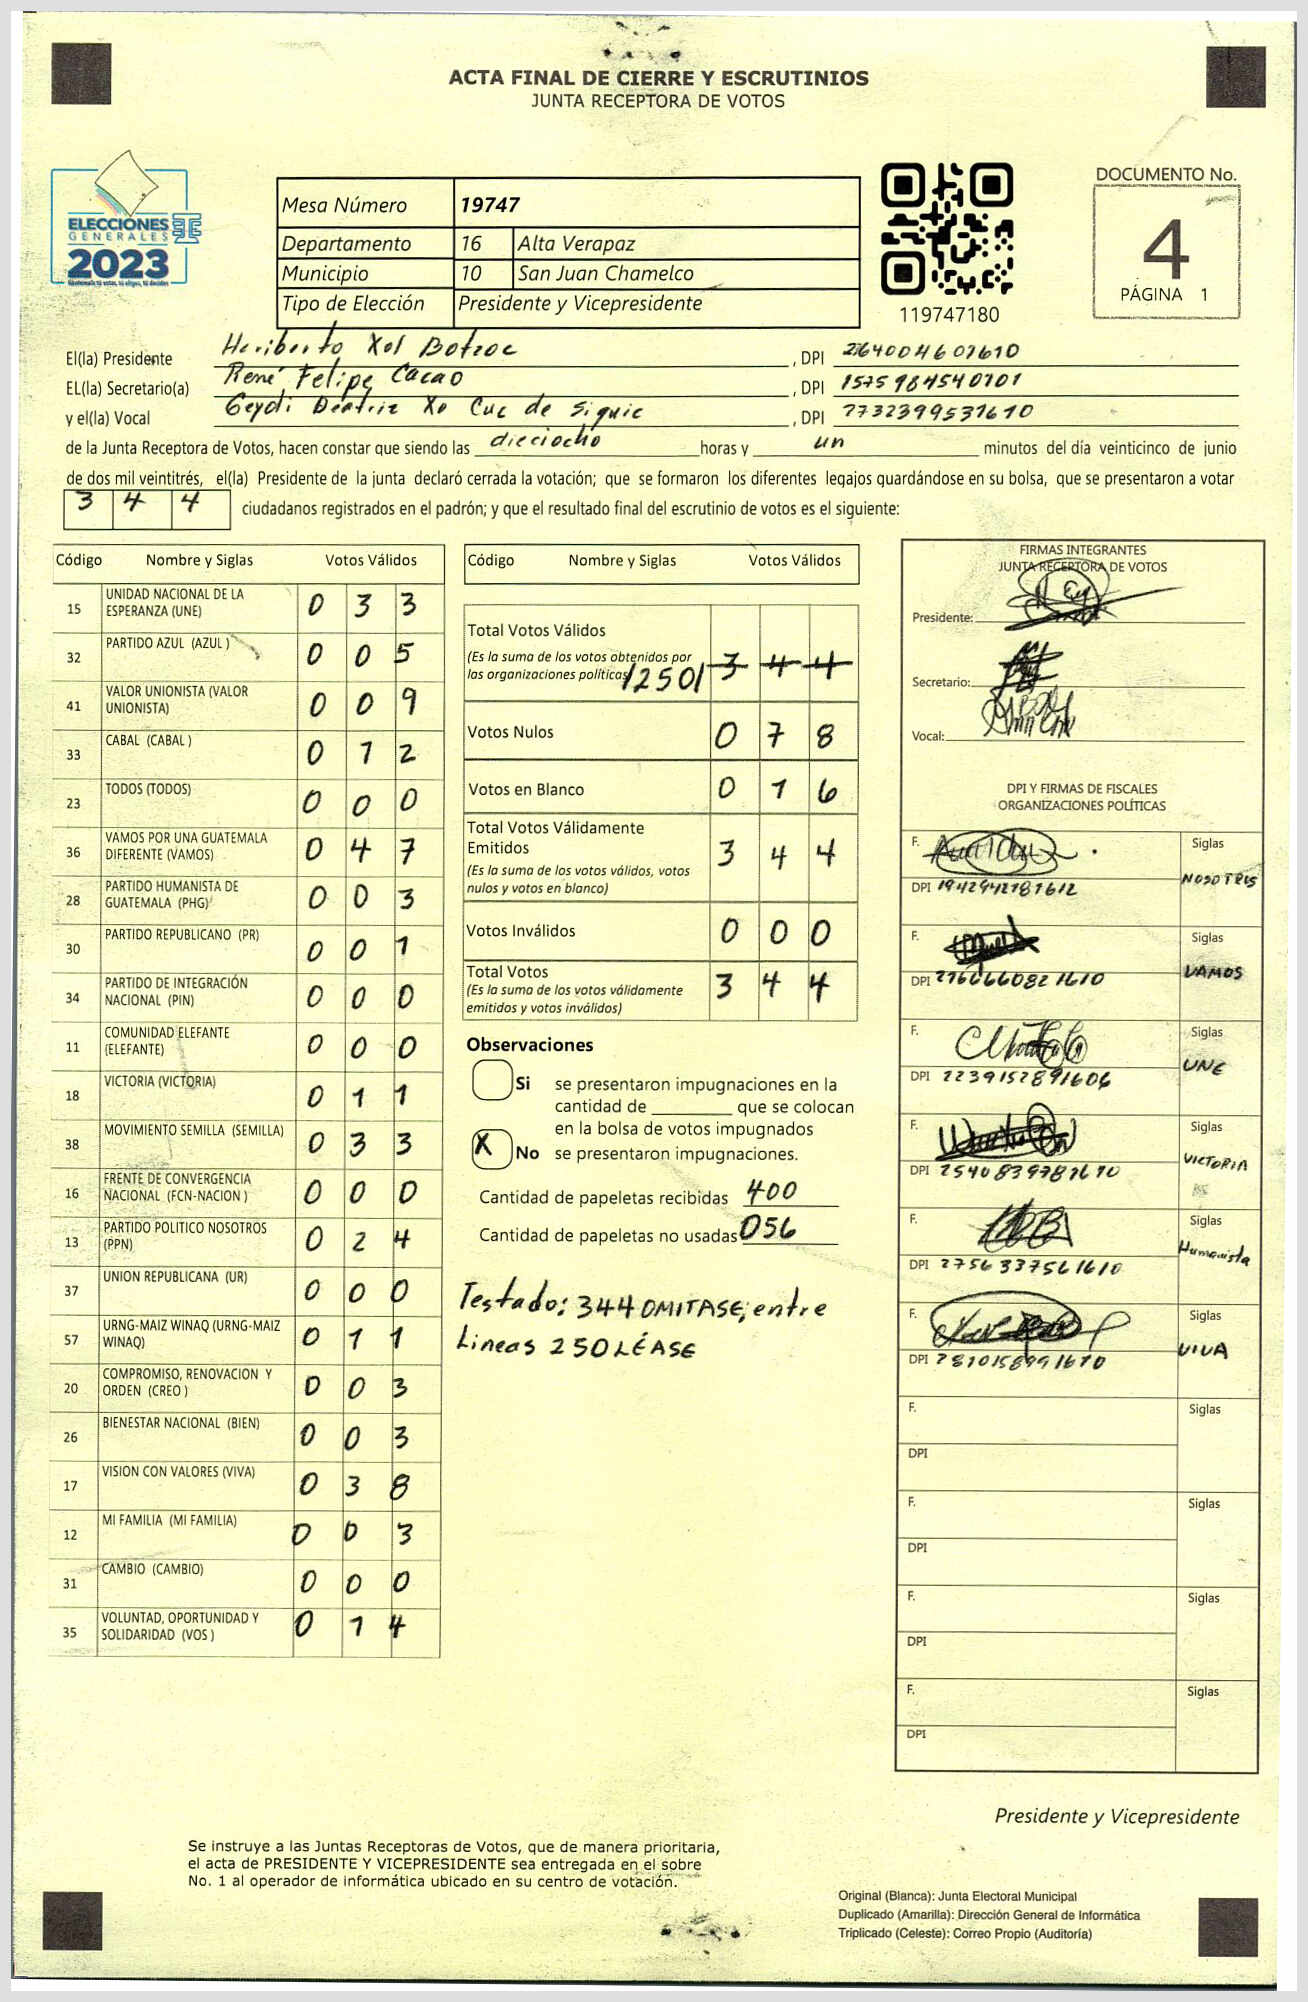 ACTA FINAL DE CIERRE Y ESCRUTINIOS
JUNTA RECEPTORA DE VOTOS
ELECCIONES
GENERALES
2023
Mesa Número 19747
Departamento 16 Alta Verapaz
Municipio 10 San Juan Chamelco
Tipo de Elección Presidente y Vicepresidente
119747180
DOCUMENTO No.
4
PÁGINA 1
El(la) Presidente Heriberto Xol Botzoc , DPI 2640046071610
EL(la) Secretario(a) René Felipe Cacao , DPI 1575984540101
y el(la) Vocal Geydi Beatriz Xo Cuc de Siquic , DPI 2732399531610
de la Junta Receptora de Votos, hacen constar que siendo las dieciocho horas y un minutos del día veinticinco de junio
de dos mil veintitrés, el(la) Presidente de la junta declaró cerrada la votación; que se formaron los diferentes legajos guardándose en su bolsa, que se presentaron a votar
3 4 4 ciudadanos registrados en el padrón; y que el resultado final del escrutinio de votos es el siguiente:
Código Nombre y Siglas Votos Válidos
15 UNIDAD NACIONAL DE LA ESPERANZA (UNE) 0 3 3
32 PARTIDO AZUL (AZUL ) 0 0 5
41 VALOR UNIONISTA (VALOR UNIONISTA) 0 0 9
33 CABAL (CABAL ) 0 1 2
23 TODOS (TODOS) 0 0 0
36 VAMOS POR UNA GUATEMALA DIFERENTE (VAMOS) 0 4 7
28 PARTIDO HUMANISTA DE GUATEMALA (PHG) 0 0 3
30 PARTIDO REPUBLICANO (PR) 0 0 1
34 PARTIDO DE INTEGRACIÓN NACIONAL (PIN) 0 0 0
11 COMUNIDAD ELEFANTE (ELEFANTE) 0 0 0
18 VICTORIA (VICTORIA) 0 1 1
38 MOVIMIENTO SEMILLA (SEMILLA) 0 3 3
16 FRENTE DE CONVERGENCIA NACIONAL (FCN-NACION ) 0 0 0
13 PARTIDO POLITICO NOSOTROS (PPN) 0 2 4
37 UNION REPUBLICANA (UR) 0 0 0
57 URNG-MAIZ WINAQ (URNG-MAIZ WINAQ) 0 1 1
20 COMPROMISO, RENOVACION Y ORDEN (CREO ) 0 0 3
26 BIENESTAR NACIONAL (BIEN) 0 0 3
17 VISION CON VALORES (VIVA) 0 3 8
12 MI FAMILIA (MI FAMILIA) 0 0 3
31 CAMBIO (CAMBIO) 0 0 0
35 VOLUNTAD, OPORTUNIDAD Y SOLIDARIDAD (VOS ) 0 1 4
Código Nombre y Siglas Votos Válidos
Total Votos Válidos
(Es la suma de los votos obtenidos por
las organizaciones políticas) /250/ 3 4 4
Votos Nulos 0 7 8
Votos en Blanco 0 1 6
Total Votos Válidamente
Emitidos 3 4 4
(Es la suma de los votos válidos, votos
nulos y votos en blanco)
Votos Inválidos 0 0 0
Total Votos 3 4 4
(Es la suma de los votos válidamente
emitidos y votos inválidos)
Observaciones
Si se presentaron impugnaciones en la
cantidad de ________ que se colocan
en la bolsa de votos impugnados
X No se presentaron impugnaciones.
Cantidad de papeletas recibidas 400
Cantidad de papeletas no usadas 056
Testado: 344 OMITASE; entre
Lineas 250 LÉASE
FIRMAS INTEGRANTES
JUNTA RECEPTORA DE VOTOS
Presidente:
Secretario:
Vocal:
DPI Y FIRMAS DE FISCALES
ORGANIZACIONES POLÍTICAS
F. Siglas
DPI 1942942181612 NOSOTROS
F. Siglas
DPI 2766660821610 VAMOS
F. Siglas
DPI 2239152891606 UNE
F. Siglas
DPI 2540839781610 VICTORIA
F. Siglas
DPI 2756337561610 Humanista
F. Siglas
DPI 2810158991610 VIVA
F. Siglas
DPI
F. Siglas
DPI
F. Siglas
DPI
F. Siglas
DPI
Presidente y Vicepresidente
Se instruye a las Juntas Receptoras de Votos, que de manera prioritaria,
el acta de PRESIDENTE Y VICEPRESIDENTE sea entregada en el sobre
No. 1 al operador de informática ubicado en su centro de votación.
Original (Blanca): Junta Electoral Municipal
Duplicado (Amarilla): Dirección General de Informática
Triplicado (Celeste): Correo Propio (Auditoría)